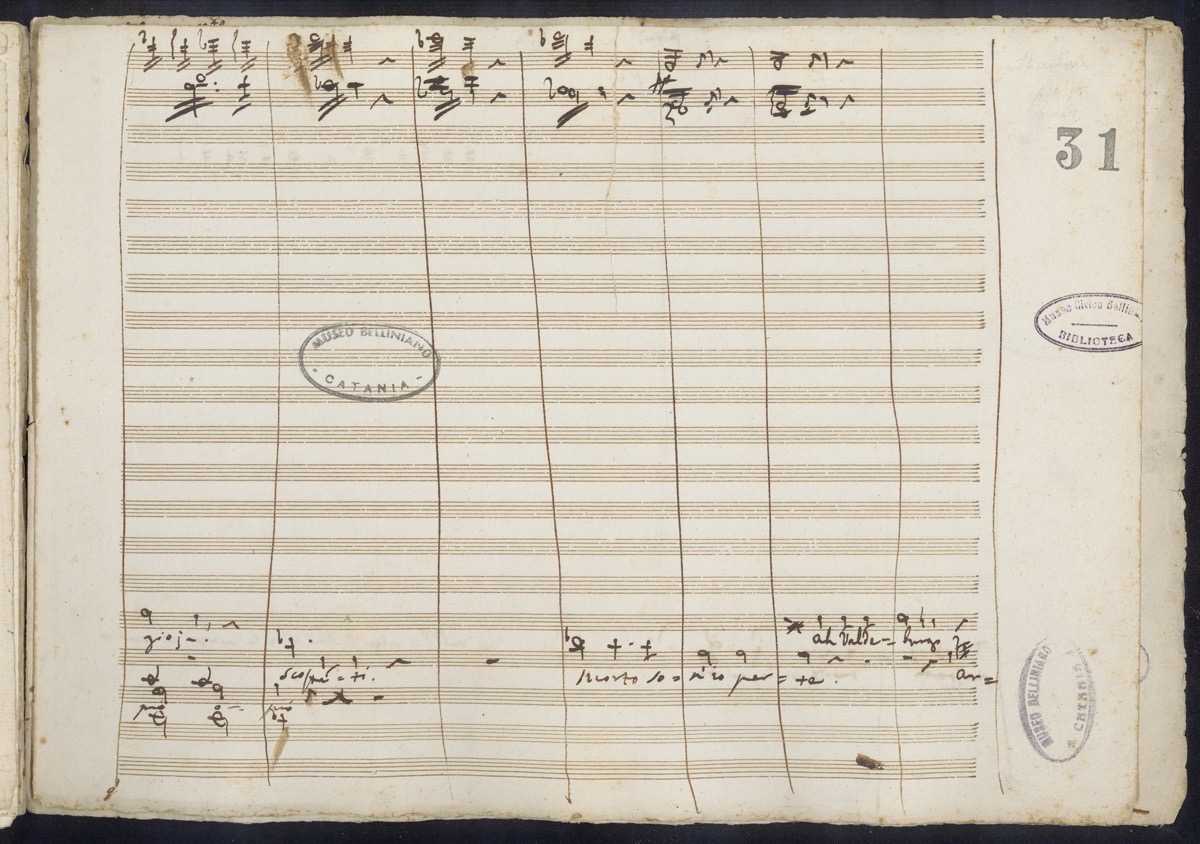 31
MUSEO BELLINIANO
- CATANIA -
Museo Civico Bellini
BIBLIOTECA
gioja.
ah Valde= burgo
sospi= ti.
Morto so= n'io per= te.
ar=
MUSEO BELLINIANO
CATANIA